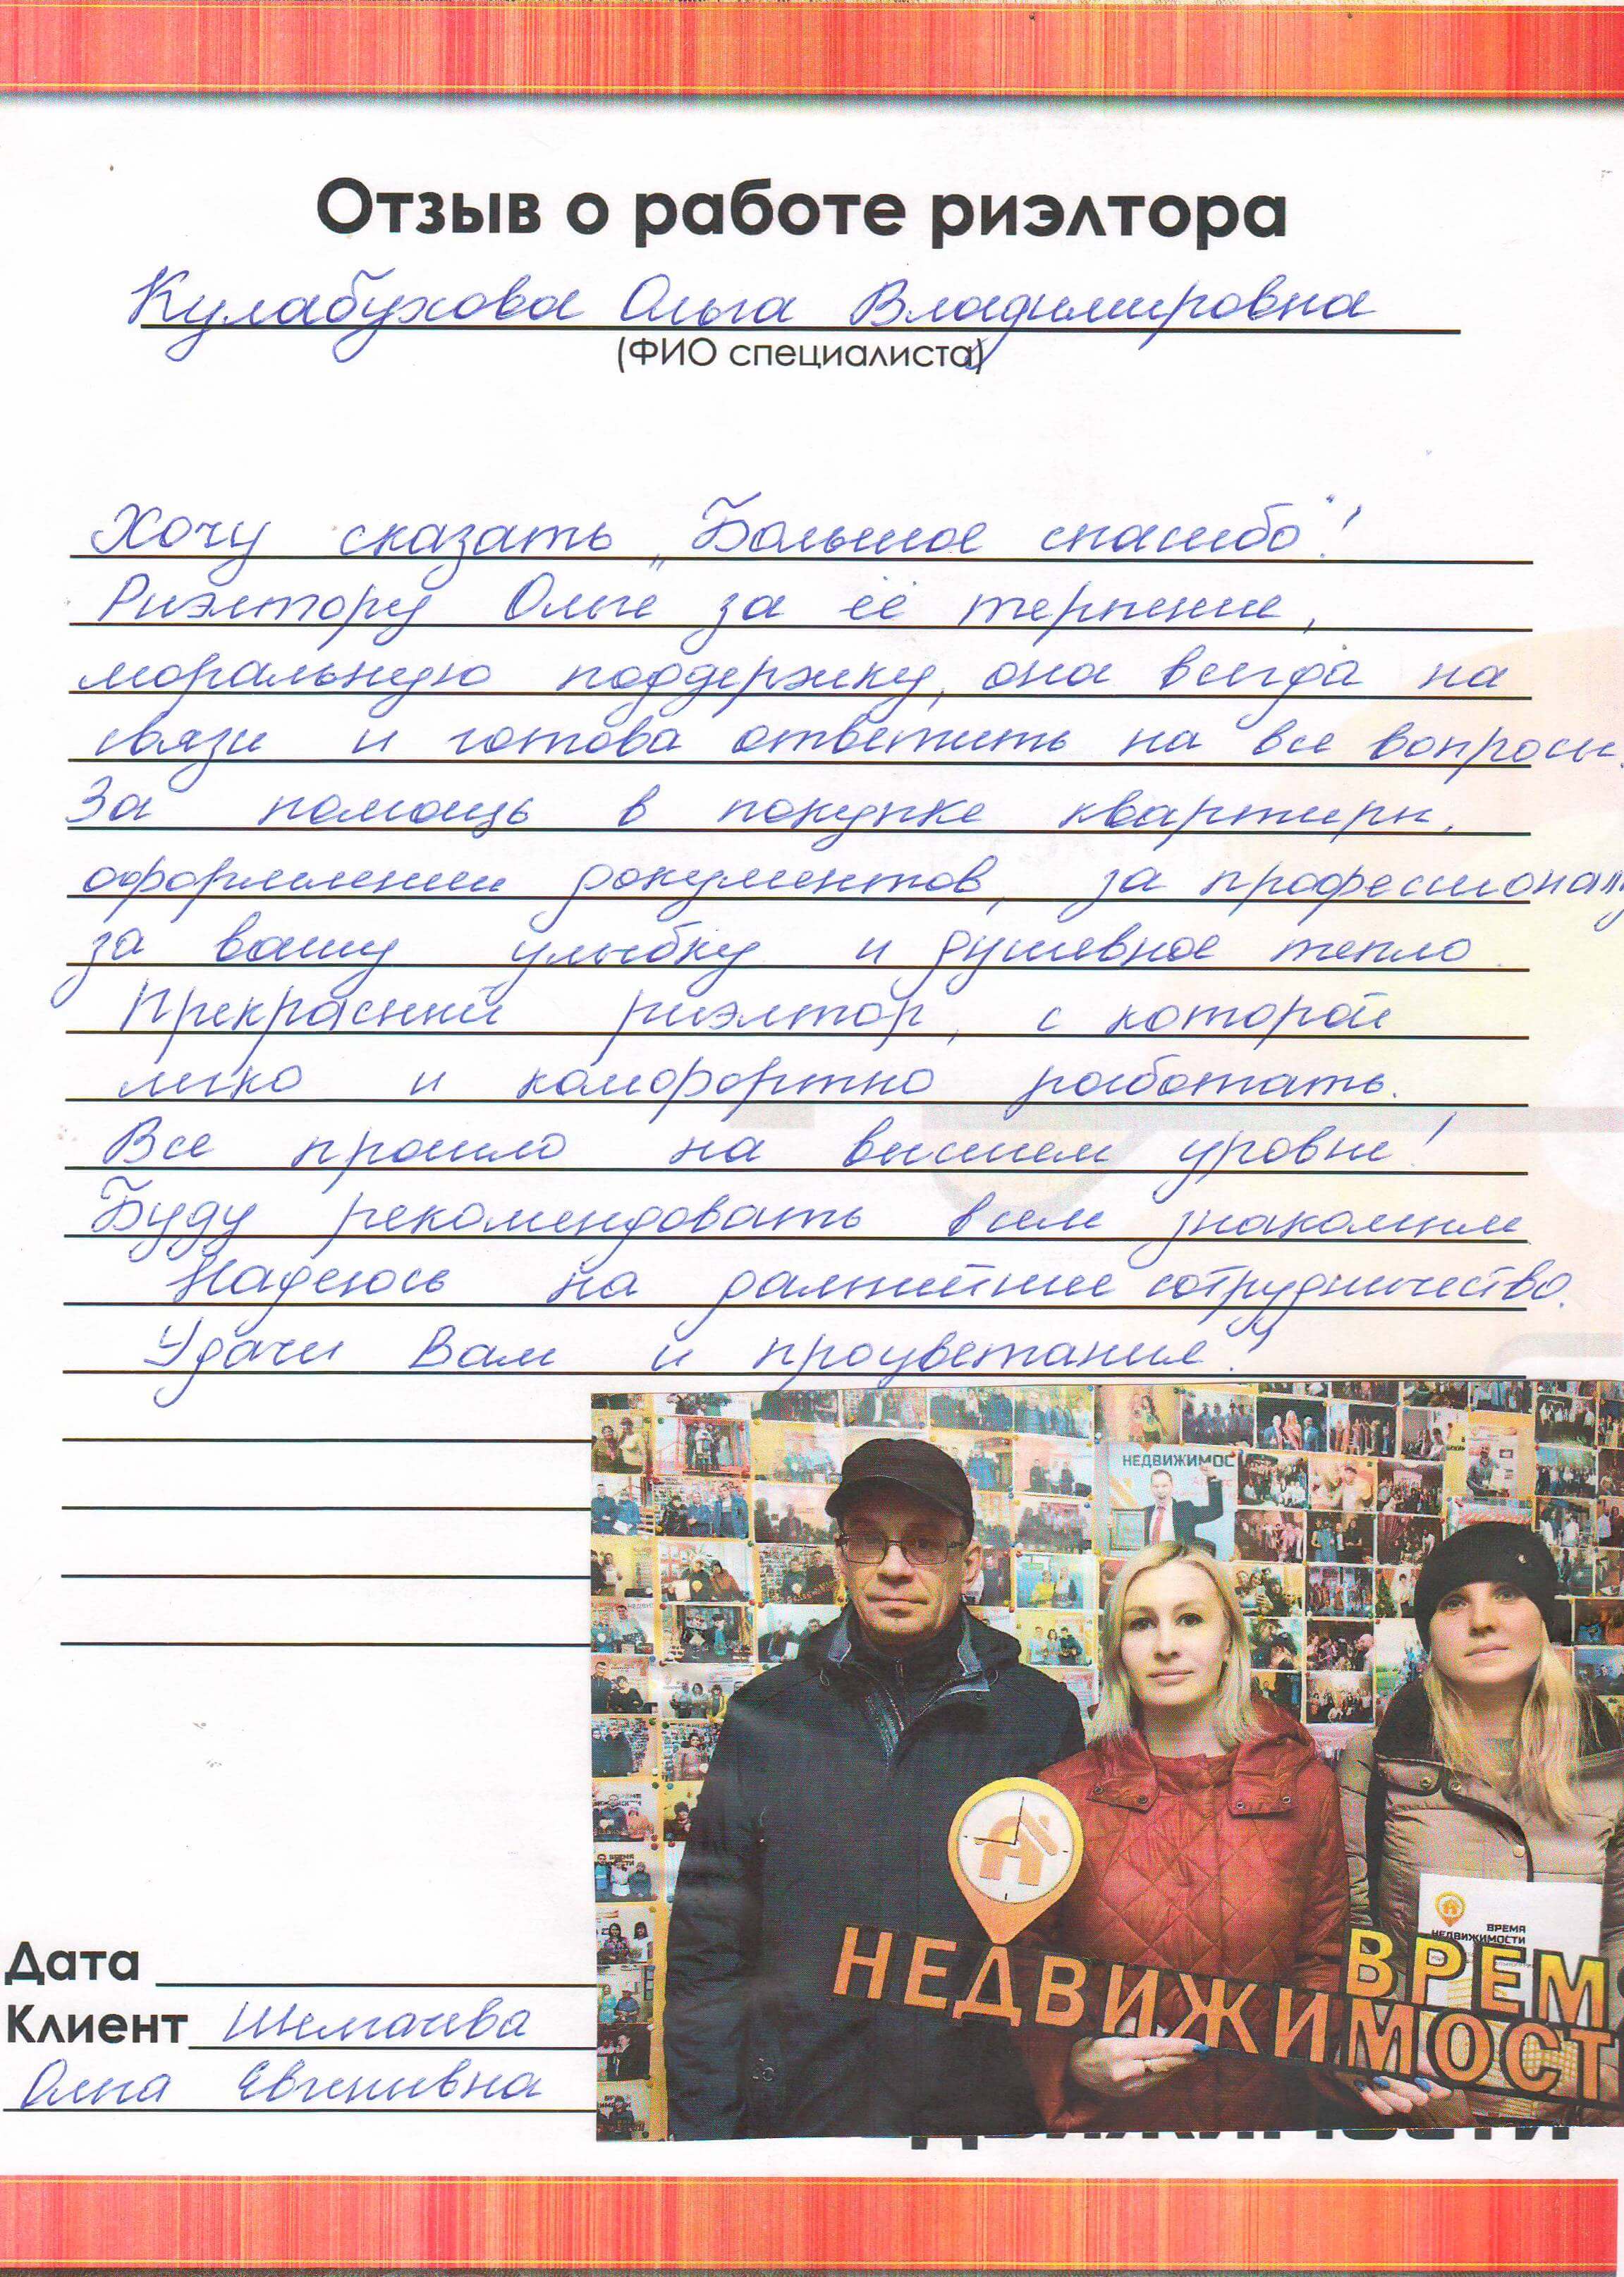 Отзыв о работе риэлтора
Кулабухова Ольга Владимировна
(ФИО специалиста)
Хочу сказать „Большое спасибо"!
Риэлтору Ольге за её терпение,
моральную поддержку, она всегда на
связи и готова ответить на все вопросы.
За помощь в покупке квартиры,
оформлении документов, за профессионализм
за вашу улыбку и душевное тепло
Прекрасный риэлтор, с которой
легко и комфортно работать.
Все прошло на высшем уровне!
Буду рекомендовать всем знакомым
Надеюсь на дальнейшее сотрудничество.
Удачи Вам и процветания!
НЕДВИЖИМОС
ВРЕМЯ
НЕДВИЖИМОСТИ
ВРЕМ
НЕДВИЖИМОСТ
Дата
Клиент
Ольга Евгеневна